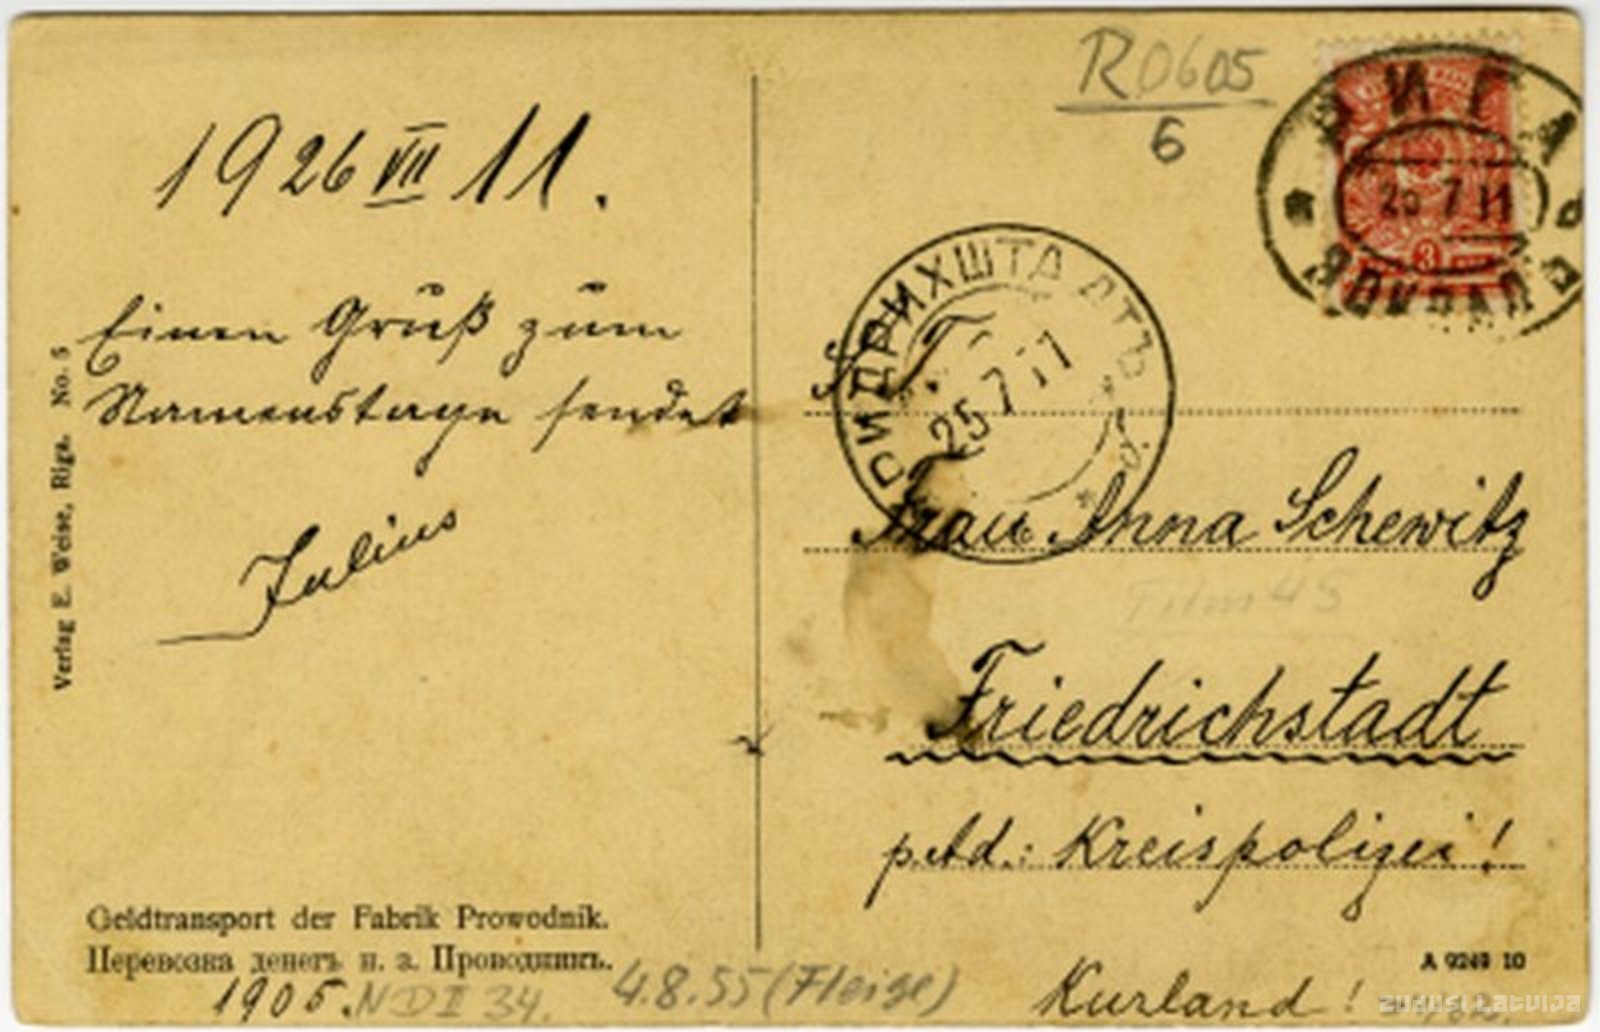 1926 VII 11.
Einen Gruß zum
Namenstage sendet
Julius
Verlag E. Weise, Riga. No. 5
Geldtransport der Fabrik Prowodnik.
Перевозка денегъ н. з. Проводникъ.
1905. ND II 34.
4.8.55 (Fleige)
R0605
6
РИГА
25 7 11
ВОКЗАЛЪ
РИДРИХШТАДТЪ
25 7 11
Frau Anna Schewitz
Film 45
Friedrichstadt
p. Ad.: Kreispolizei!
A 9249 10
Kurland!
zudusi Latvija